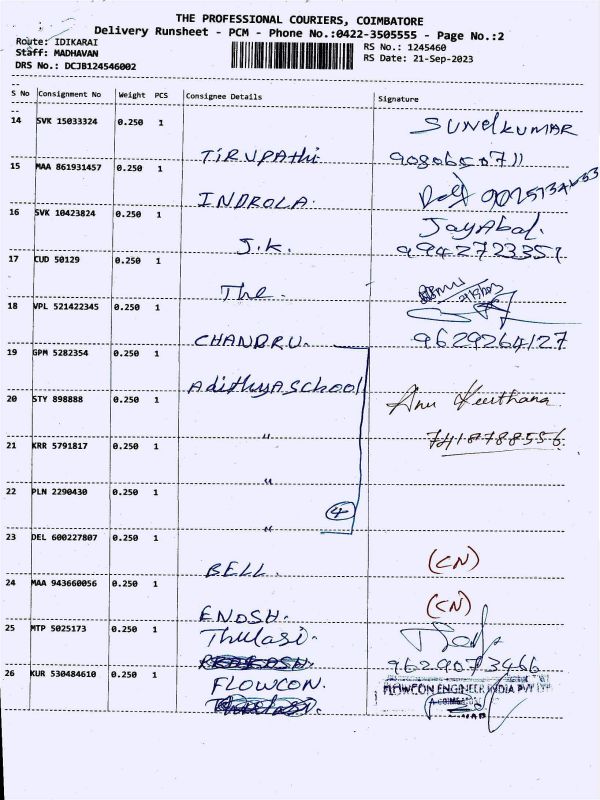 THE PROFESSIONAL COURIERS, COIMBATORE
Delivery Runsheet - PCM - Phone No.:0422-3505555 - Page No.:2
Route: IDIKARAI
RS No.: 1245460
Staff: MADHAVAN
RS Date: 21-Sep-2023
DRS No.: DCJB124546002
S No Consignment No Weight PCS Consignee Details Signature
14 SVK 15033324 0.250 1
TIRUPAThi
SUNelKUMAR
9080650711
15 MAA 861931457 0.250 1
INDROLA.
16 SVK 10423824 0.250 1
J.K.
JayAbal.
9942723351
17 CUD 50129 0.250 1
The.
18 VPL 521422345 0.250 1
CHANDRU.
9629264127
19 GPM 5282354 0.250 1
AdithyA School
20 STY 898888 0.250 1
"
Anu Keerthana
7418788556
21 KRR 5791817 0.250 1
"
22 PLN 2290430 0.250 1
"
4
23 DEL 600227807 0.250 1
BELL.
(CN)
24 MAA 943660056 0.250 1
ENOSH.
(CN)
25 MTP 5025173 0.250 1
Thulasi.
9629073466
26 KUR 530484610 0.250 1
FLOWCON.
FLOWCON ENGINEER INDIA PVT LTD